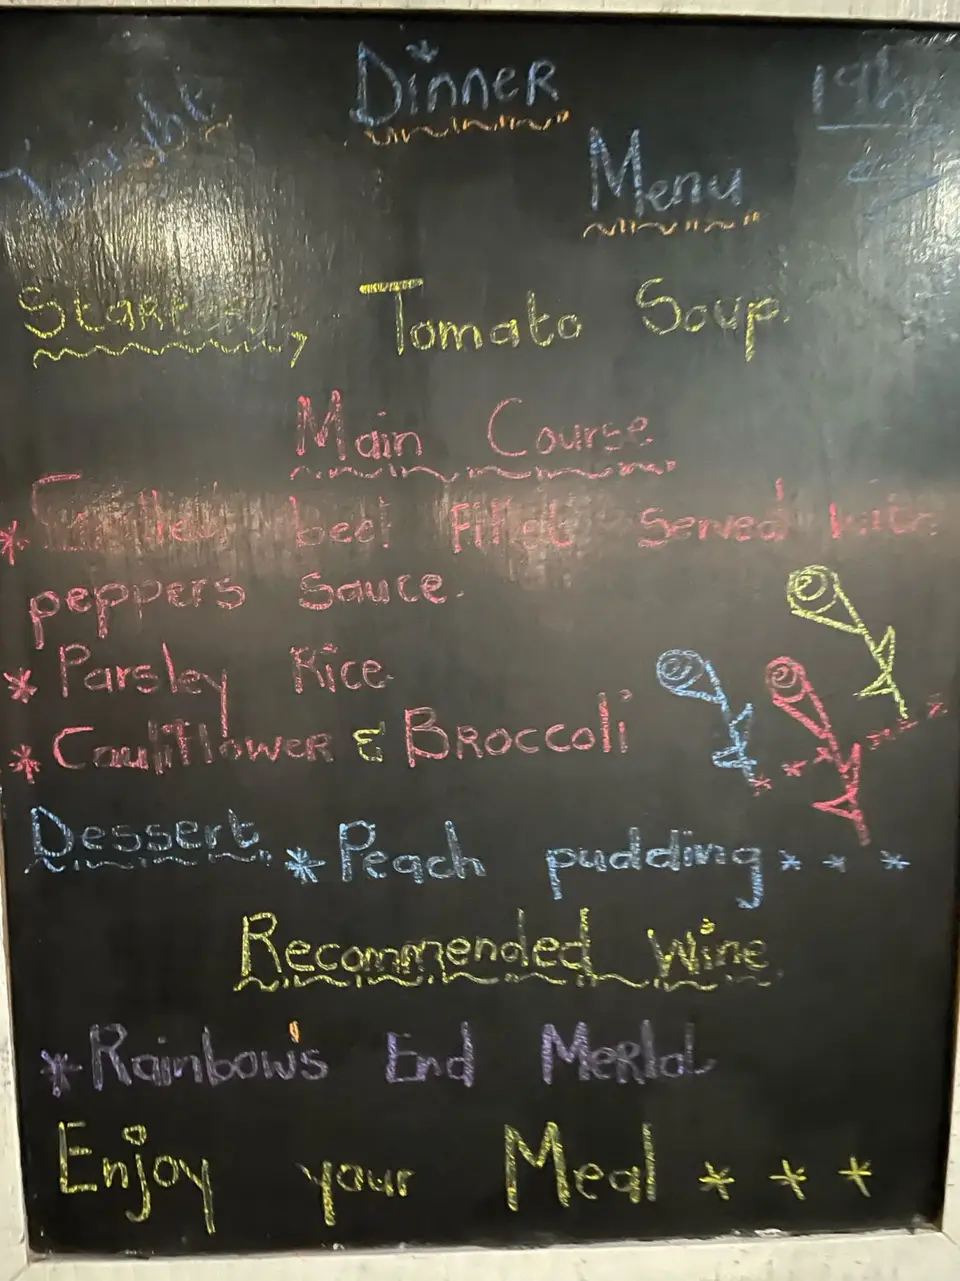 Tonight
Dinner
Menu
Starter, Tomato Soup.
Main Course
* Grilled beef Fillet Served with
peppers Sauce.
* Parsley Rice
* Cauliflower & Broccoli
Dessert * Peach pudding * * *
Recommended Wine
* Rainbow's End Merlot
Enjoy your Meal * * *